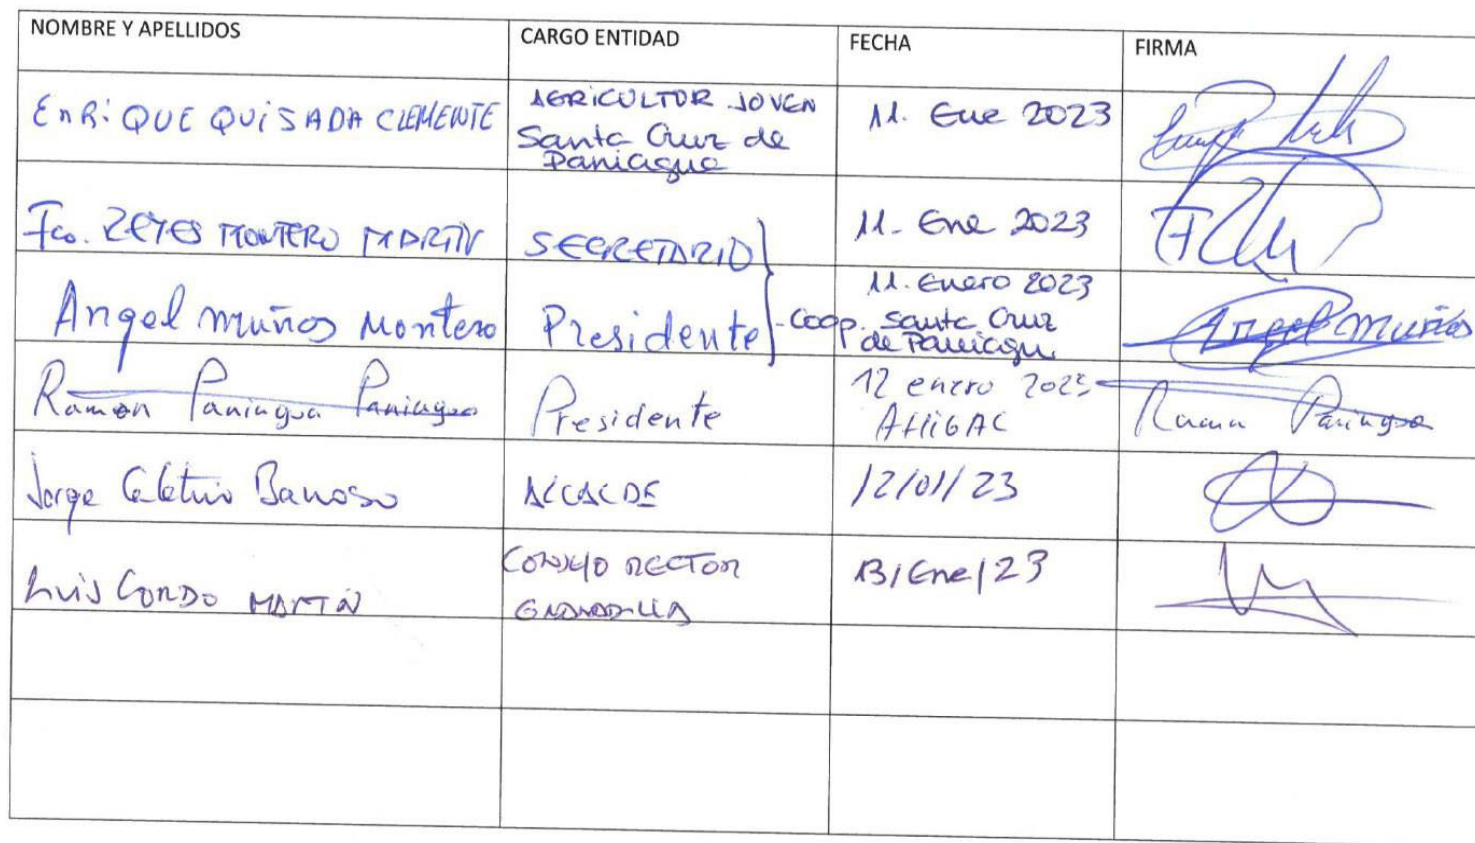 NOMBRE Y APELLIDOS CARGO ENTIDAD FECHA FIRMA
ENRiQUE QUiSADA CLEMENTE AGRICULTOR JOVEN 11. Ene 2023
Santa Cruz de
Paniagua
Fco. REYES MONTERO MARTIN SECRETARIO 11- Ene 2023
Angel muños Montero Presidente - Coop. Santa Cruz de Paniagu 11. Enero 2023 Angel muños
Ramon Paniagua Paniagua Presidente 12 enero 2023 Ramon Paniagua
AHIGAL
Jorge Barroso ALCALDE 12/01/23
Luis GORDO MARTIN CONSEJO RECTOR 13/Ene/23
GRANADILLA